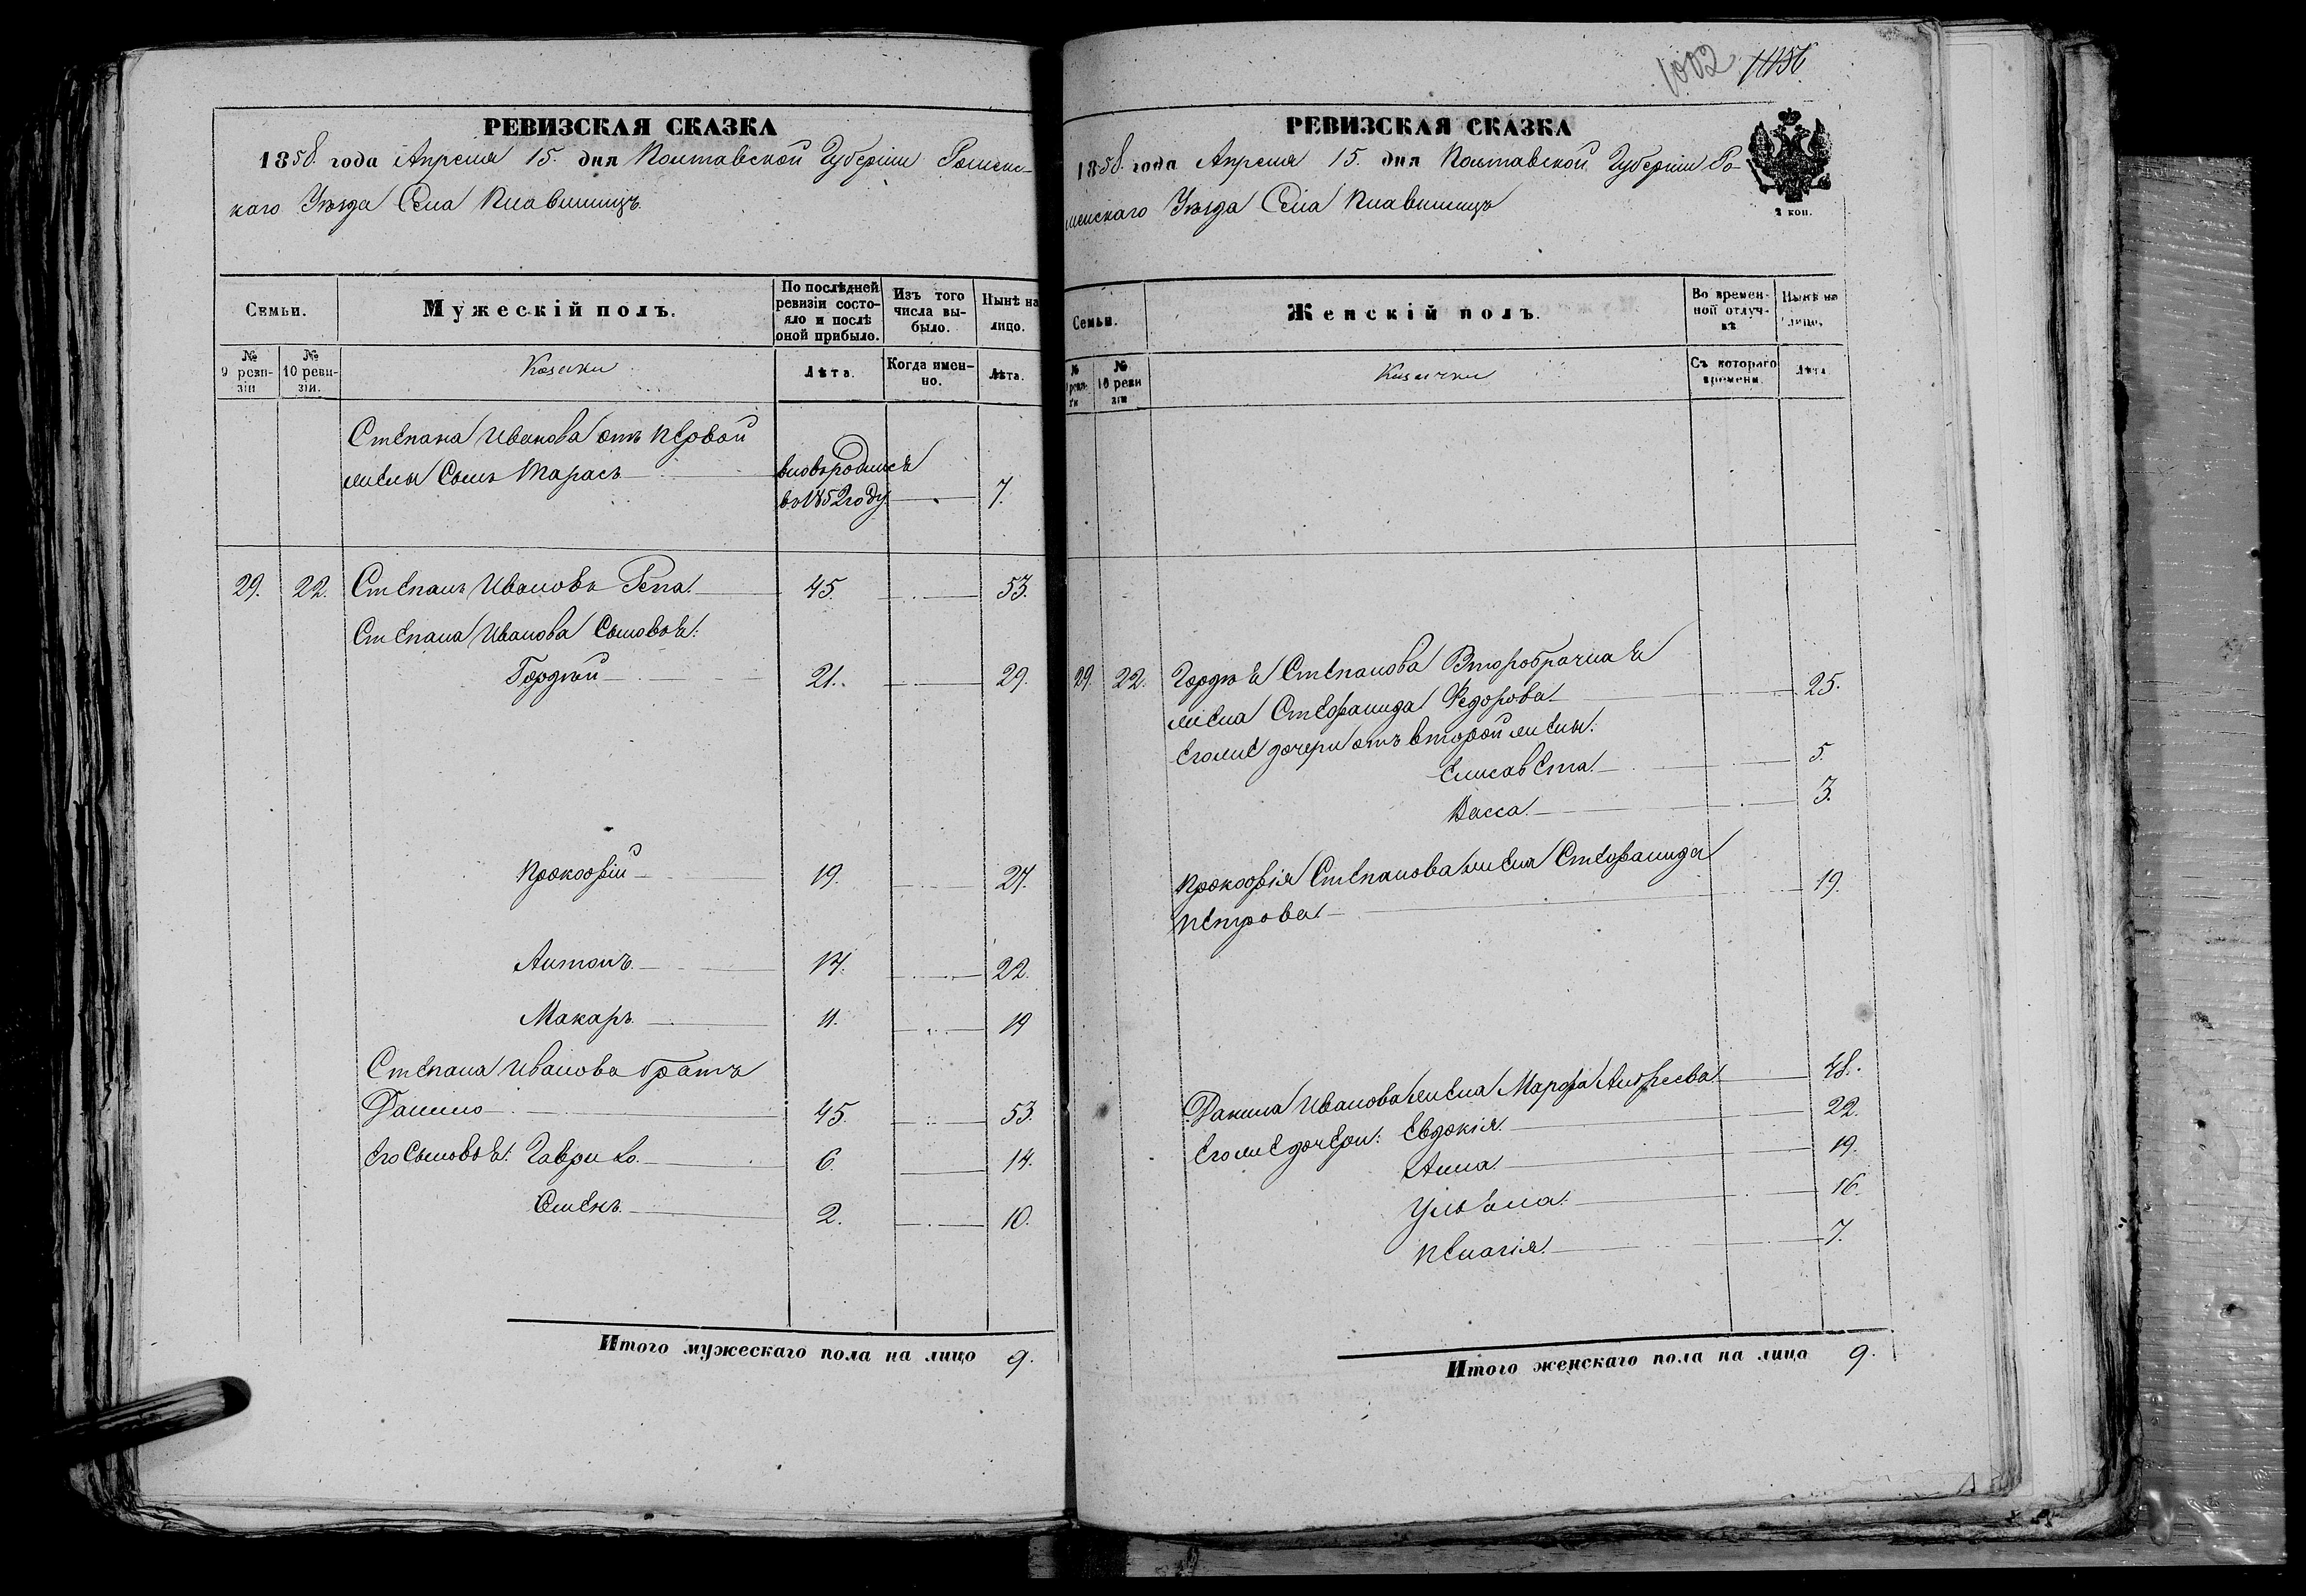 РЕВИЗСКАЯ СКАЗКА
1858. года Апреля 15. дня Полтавской Губерніи Роменс-
каго Уѣзда Села
Семьи.
Мужескій полъ.
По послѣдней ревизіи состояло и послѣ оной прибыло.
Изъ того числа выбыло.
Нынѣ на лицо.
№ 9 ревизіи
№ 10 ревизіи.
Козаки
Лѣта.
Когда именно.
Лѣта.
Степана Иванова отъ первой
жены Сынъ Тарасъ
вновьродился
въ 1852 году
7.
29. 22. Степанъ Ивановъ Репа. 45. 53.
Степана Иванова Сыновья:
Гордѣй 21. 29.
Прокофій 19. 27.
Антонъ 14. 22.
Макаръ 11. 19
Степана Иванова братъ
Данило 45. 53.
Его Сыновья: Гаврило. 6. 14.
Семенъ. 2. 10.
Итого мужескаго пола на лицо 9.
1002 1056
РЕВИЗСКАЯ СКАЗКА
1858. года Апреля 15. дня Полтавской Губерніи Ро-
менскаго Уѣзда Села
2 коп.
Семьи.
Женскій полъ.
Во временной отлучкѣ
Нынѣ на лицо.
№ 9 ревизіи
№ 10 ревизіи
Козачки
Съ котораго времени.
Лѣта
29. 22. Гордѣя Степанова Второбрачная
жена Стефанида Федорова 25.
Егоже дочери отъ второй жены:
Елисавета 5.
Васса. 3.
Прокофія Степанова жена Стефанида 19.
Петрова
Данила Иванова жена Марфа Андреева 48.
Егоже дочери: Евдокія. 22.
Анна. 19.
Ульяна. 16.
Пелагія. 7.
Итого женскаго пола на лицо 9.